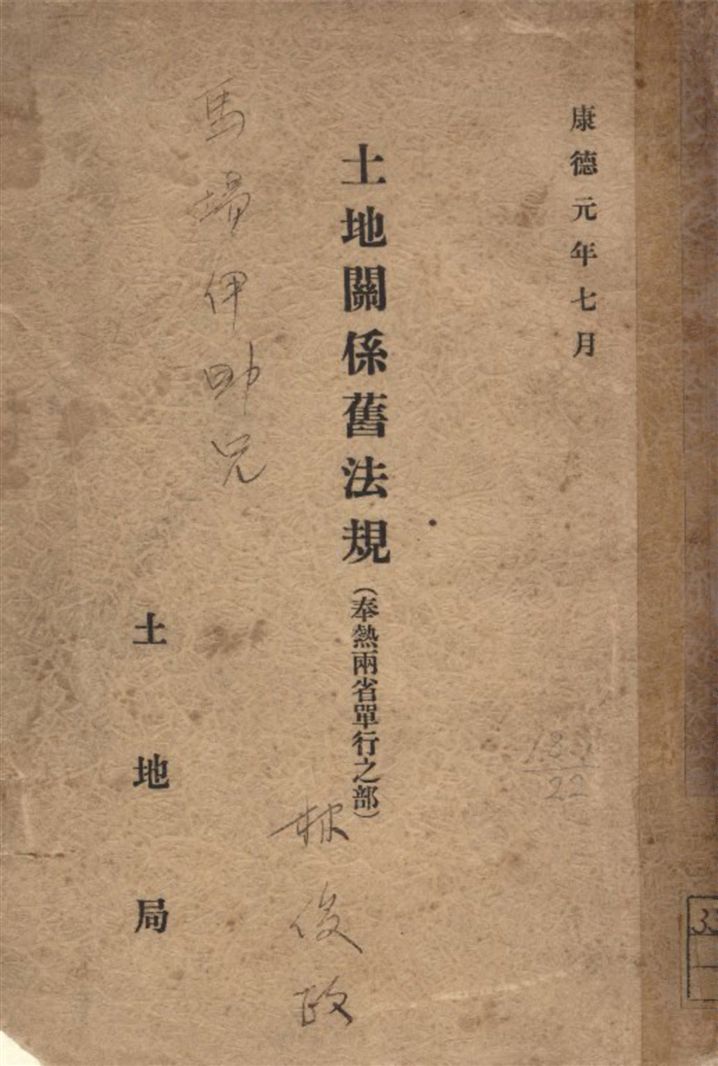 康德元年七月
土地關係舊法規(奉熱兩省單行之部)
土地局
馬場伊助兄
林俊政
133
22